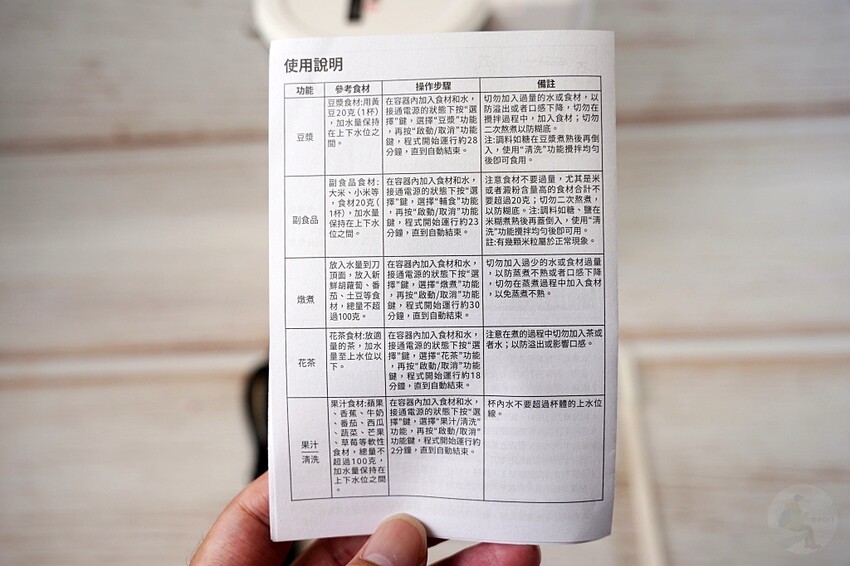 使用說明
功能
參考食材
操作步驟
備註
豆漿
豆漿食材:用黃
豆20克(1杯)
，加水量保持
在上下水位之
間。
在容器內加入食材和水，
接通電源的狀態下按“選
擇”鍵，選擇“豆漿”功能
，再按“啟動/取消”功能
鍵，程式開始運行約28
分鐘，直到自動結束。
切勿加入過量的水或食材，以
防溢出或者口感下降，切勿在
攪拌過程中，加入食材；切勿
二次熬煮以防糊底。
注:調料如糖在豆漿煮熟後再倒
入，使用“清洗”功能攪拌均勻
後卽可食用。
副食品
副食品食材:
大米、小米等
，食材20克(
1杯)，加水量
保持在上下水
位之間。
在容器內加入食材和水，
接通電源的狀態下按“選
擇”鍵，選擇“輔食”功能
，再按“啟動/取消”功能
鍵，程式開始運行約23
分鐘，直到自動結束。
注意食材不要過量，尤其是米
或者澱粉含量高的食材合計不
要超過20克；切勿二次熬煮，
以防糊底。注:調料如糖、鹽在
米糊煮熟後再蓋倒入，使用“清
洗”功能攪拌均勻後卽可用。
註:有幾顆米粒屬於正常現象。
燉煮
放入水量到刀
頂面，放入新
鮮胡蘿蔔、番
茄、土豆等食
材，總量不超
過100克。
在容器內加入食材和水，
接通電源的狀態下按“選
擇”鍵，選擇“燉煮”功能
，再按“啟動/取消”功能
鍵，程式開始運行約30
分鐘，直到自動結束。
切勿加入過少的水或食材過量
，以防蒸煮不熟或者口感下降
，切勿在蒸煮過程中加入食材
，以免蒸煮不熟。
花茶
花茶食材:放適
量的茶，加水
量至上水位以
下。
在容器內加入食材和水，
接通電源的狀態下按“選
擇”鍵，選擇“花茶”功能
，再按“啟動/取消”功能
鍵，程式開始運行約18
分鐘，直到自動結束。
注意在煮的過程中切勿加入茶或
者水；以防溢出或影響口感。
果汁
清洗
果汁食材:蘋果
、香蕉、牛奶
、番茄、西瓜
、蔬菜、芒果
、草莓等軟性
食材，總量不
超過100克，
加水量保持在
上下水位之間
。
在容器內加入食材和水，
接通電源的狀態下按“選
擇”鍵，選擇“果汁/清洗”
功能，再按“啟動/取消”
功能鍵，程式開始運行約
2分鐘，直到自動結束。
杯內水不要超過杯體的上水位
線。